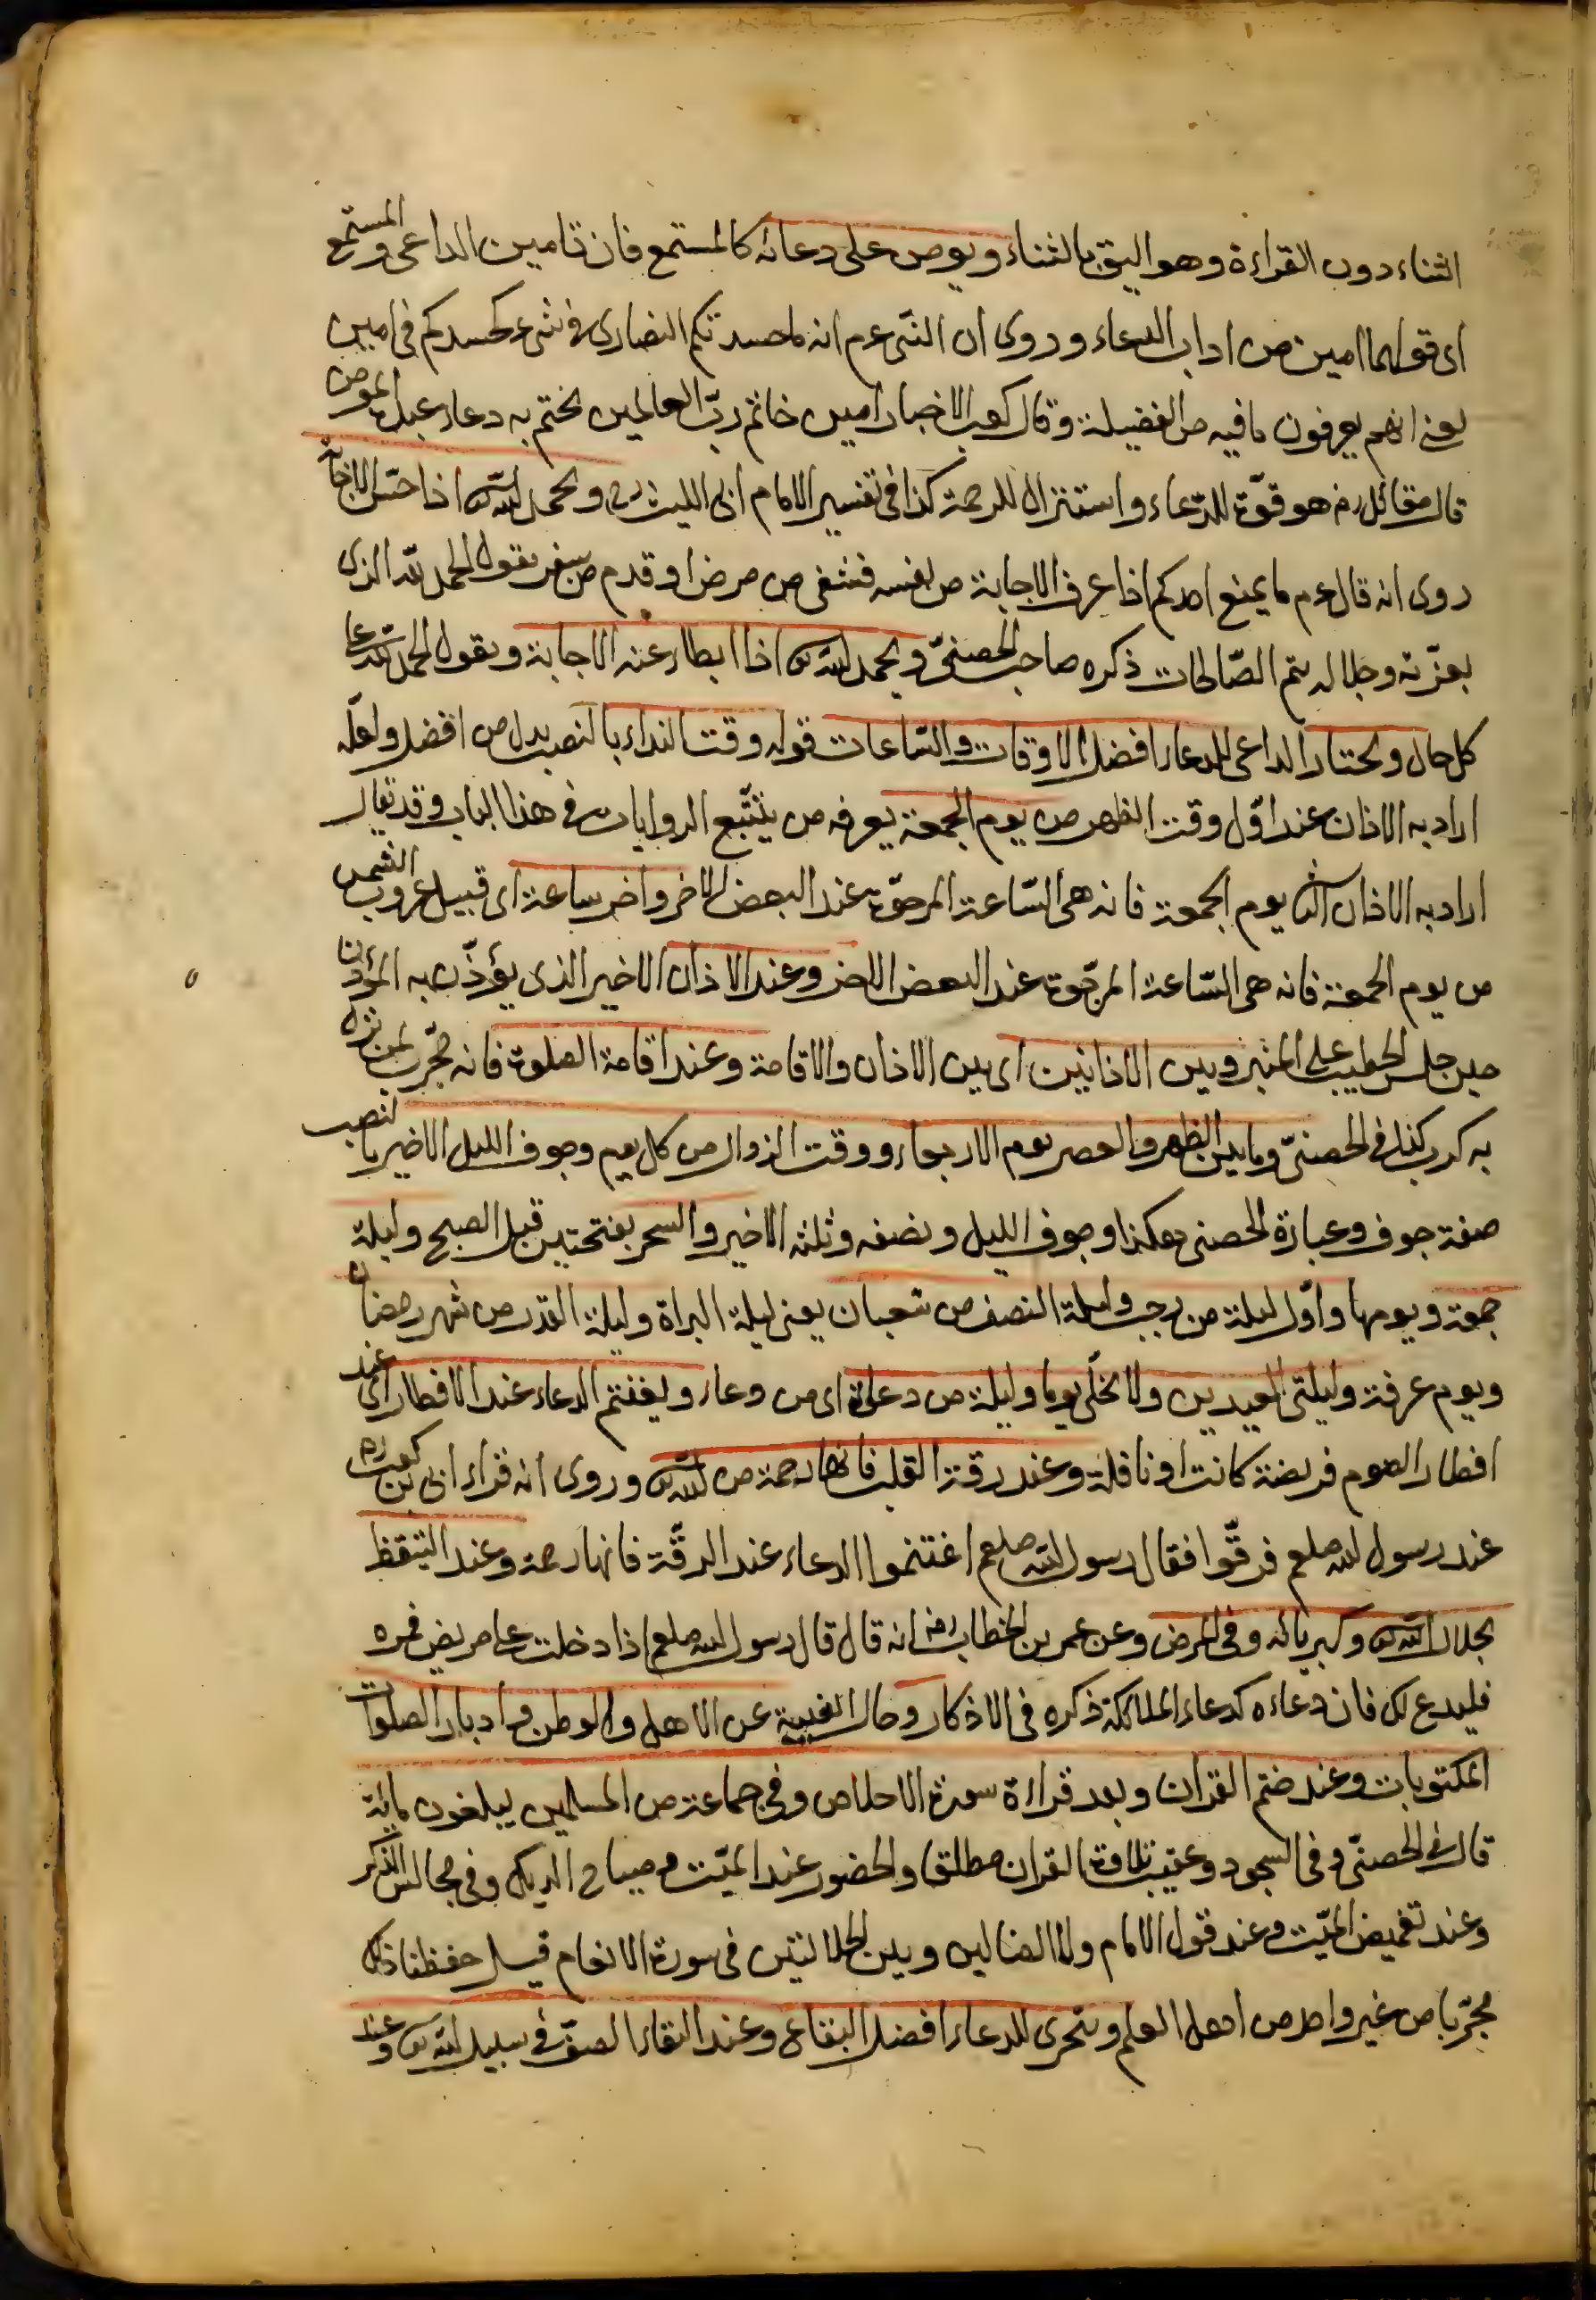 الثناء دون القراءة وهو اليق بالثناء ويؤمن على دعائه كالمستمع فان تامين الداعى والمستمع
اى قولهما امين من اداب الدعاء وروى ان النبى عم انه ما حسدتكم النصارى فى شىء كحسدكم فى امين
يعنى انهم يعرفون ما فيه من الفضيلة وقال كعب الاخبار امين خاتم ربّ العالمين يختم به دعاء عبده المؤمن
قال مقاتل رض هو قوّة للدعاء واستنزال للرحمة كذا فى تفسير الامام ابى الليث رح ويحمد الله اذا احسّ الاجابة
روى انه قال عم ما يمنع احدكم اذا عرف الاجابة من نفسه فشفى من مرض او قدم من سفر يقول الحمد لله الذى
بعزّته وجلاله يتم الصّالحات ذكره صاحب الحصنىّ ويحمد الله اذا ابطاء عنه الاجابة ويقول الحمد لله على
كل حال ويختار الداعى للدعاء افضل الاوقات والسّاعات قوله وقت النداء بالنصب بدل من افضل ولعلّه
اراد به الاذان عند اوّل وقت الظهر من يوم الجمعة يعرفه من يتتبّع الروايات فى هذا الباب وقد يقال
اراد به الاذان الثانى يوم الجمعة فانه هى السّاعة المرجوّة عند البعض الاخر واخر ساعة اى قبيل غروب الشمس
من يوم الجمعة فانه هى السّاعة المرجّوة عند البعض الاخر وعند الاذان الاخير الذى يؤذّن به المؤذن
حين جلس الخطيب على المنبر وبين الاذانين اى بين الاذان والاقامة وعند اقامة الصلوة فانه مجرّب لمن نزل
به كرب كذا فى الحصنىّ وما بين الظهر والعصر يوم الاربعاء ووقت الزوال من كل يوم وجوف الليل الاخير بالنصب
صفة جوف وعبارة الحصنى هكذا وجوف الليل ونصفه وثلثه الاخير والسحر بفتحتين قبل الصبح وليلة
جمعة ويومها واوّل ليلة من رجب وليلة النصف من شعبان يعنى ليلة البراة وليلة القدر من شهر رمضان
ويوم عرفة وليلتى العيدين ولا يخلّى يوما وليلة من دعوة اى من دعاء ويغتنم الدعاء عند الافطار اى عند
افطار الصوم فريضة كانت او نافلة وعند رقة القلب فانها رحمة من الله وروى انه قراء ابى بن كعب رض
عند رسول الله صلعم فرقّوا فقال رسول الله صلعم اغتنموا الدعاء عند الرقّة فانها رحمة وعند التيقظ
بجلال الله وكبريائه وفى المرض وعن عمر بن الخطاب رض انه قال قال رسول الله صلعم اذا دخلت على مريض فمره
فليدع لك فان دعاءه كدعاء الملائكة ذكره فى الاذكار وحال الغيبة عن الاهل والوطن وادبار الصلوات
المكتوبات وعند ختم القران وبعد قراءة سورة الاخلاص وفى جماعة من المسلمين يبلغون مائة
قال فى الحصنىّ وفى السجود وعقيب تلاوة القران مطلقا والحضور عند الميّت وصياح الديك وفى مجالس الذكر
وعند تغميض الميّت وعند قول الامام ولا الضالين وبين الجلالتين فى سورة الانعام قيل حفظنا ذلك
مجرّبا من غير واحد من اهل العلم ويتحرى للدعاء افضل البقاع وعند التقاء الصفّ فى سبيل الله وعند